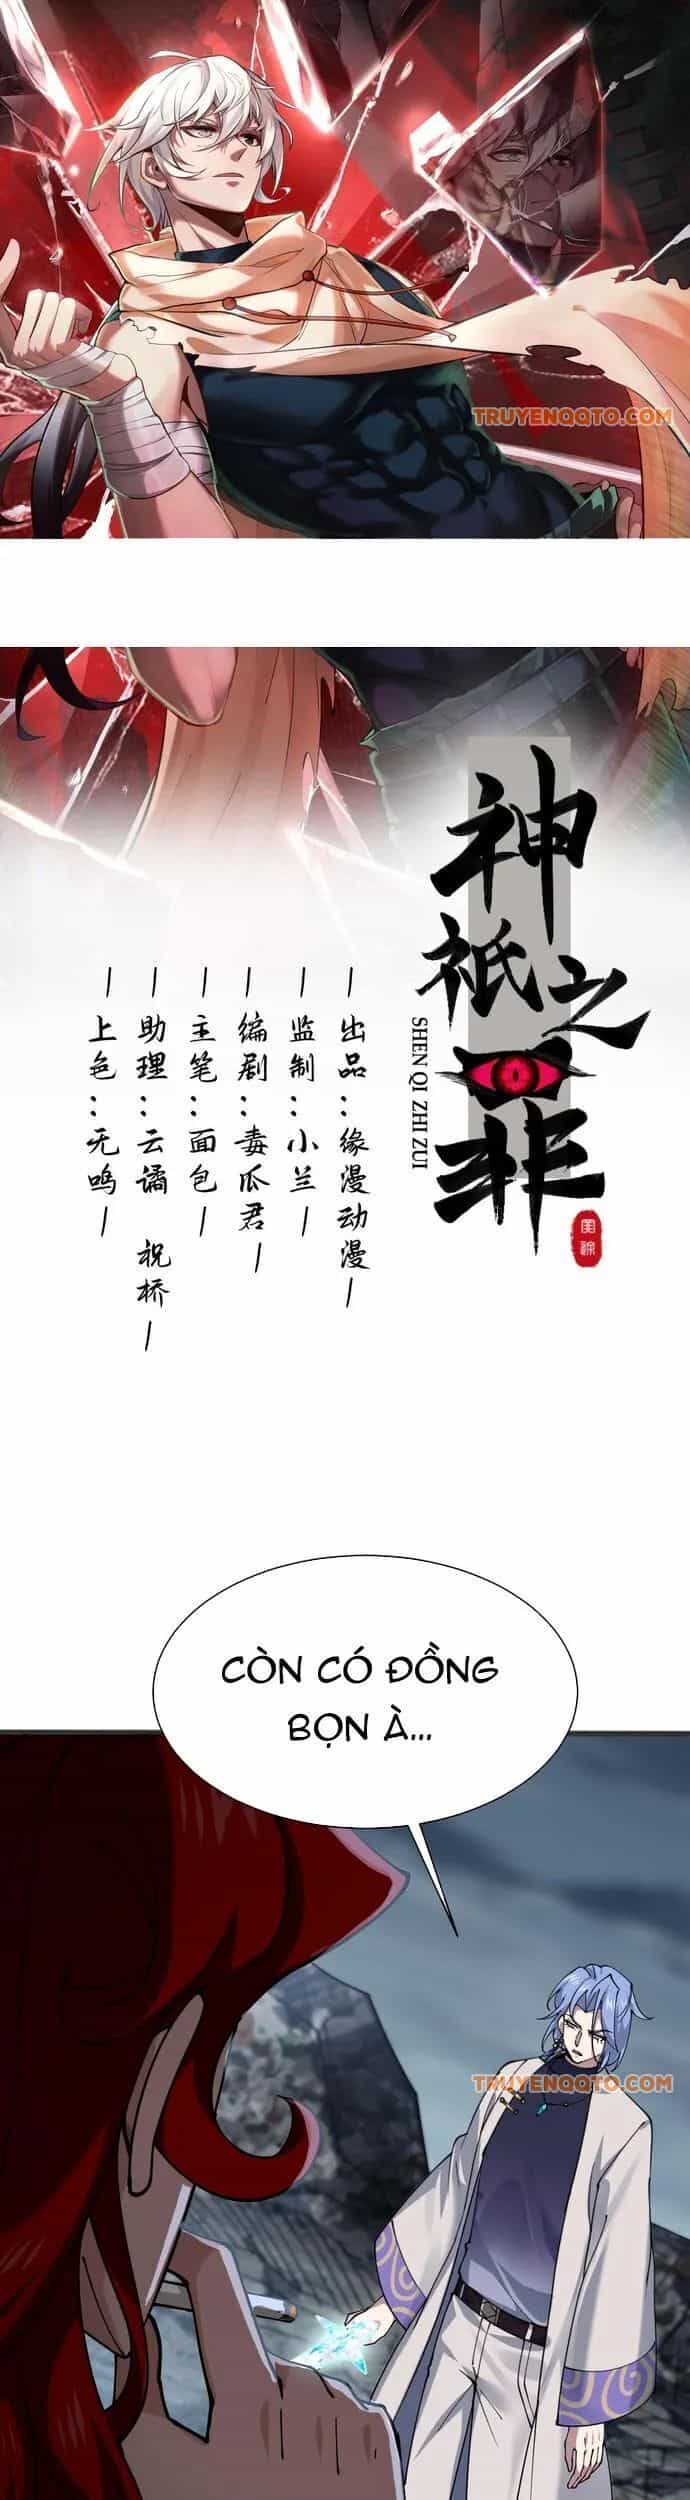 TRUYENQQTO.COM
神祇之罪
SHEN QI ZHI ZUI
出品：缘漫动漫
监制：小兰
编剧：毒瓜君
主笔：面包
助理：云谲 祝桥
上色：无鸣
CÒN CÓ ĐỒNG
BỌN À...
TRUYENQQTO.COM